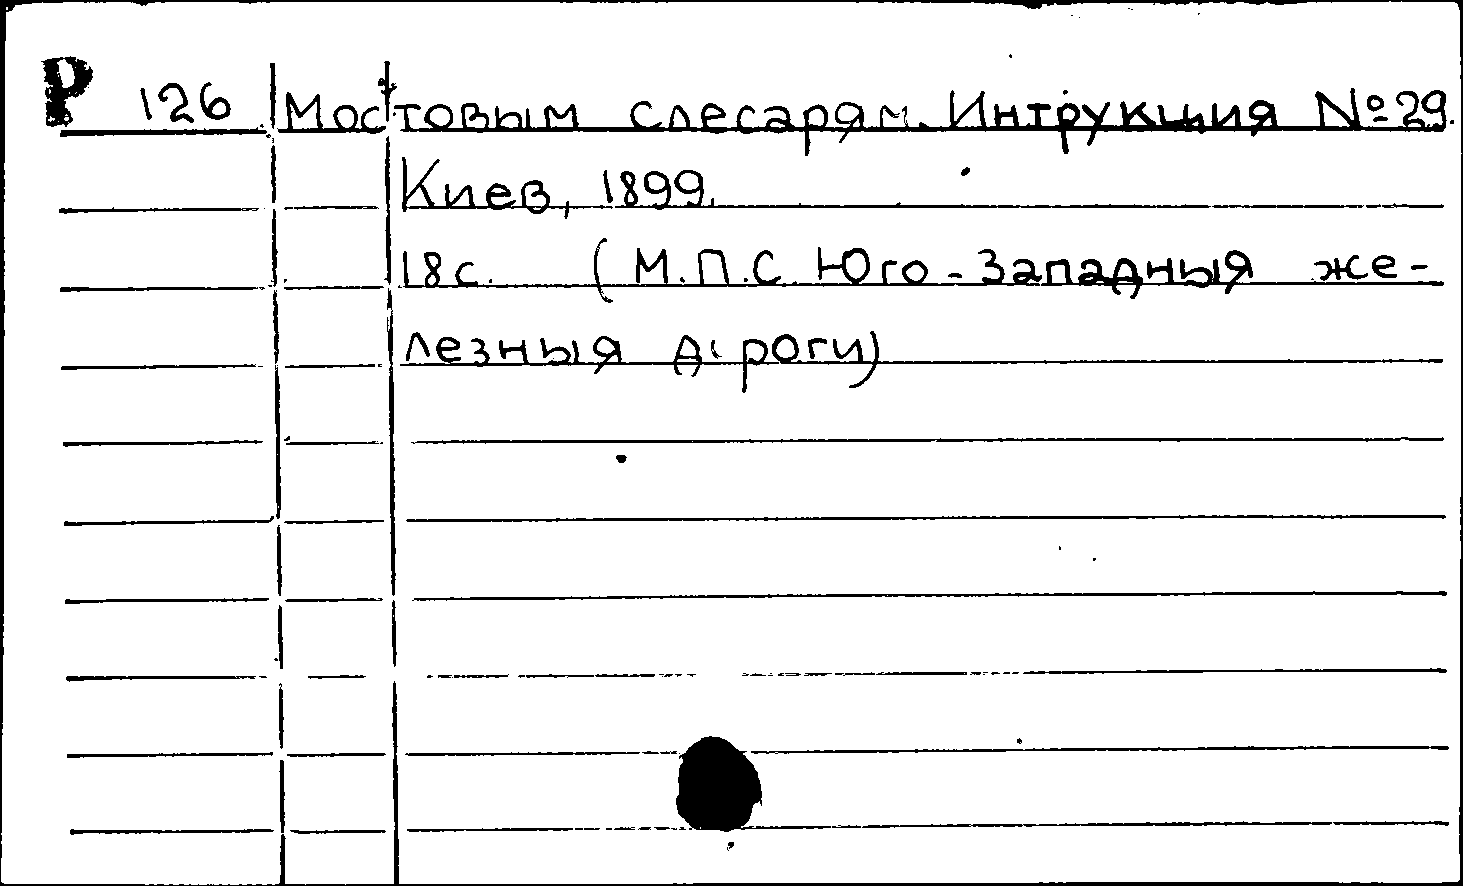 Р 126 Мостовым слесарям. Интрукция №29.
Киев, 1899.
18с. (М.П.С. Юго-Западныя же-
лезныя дороги)